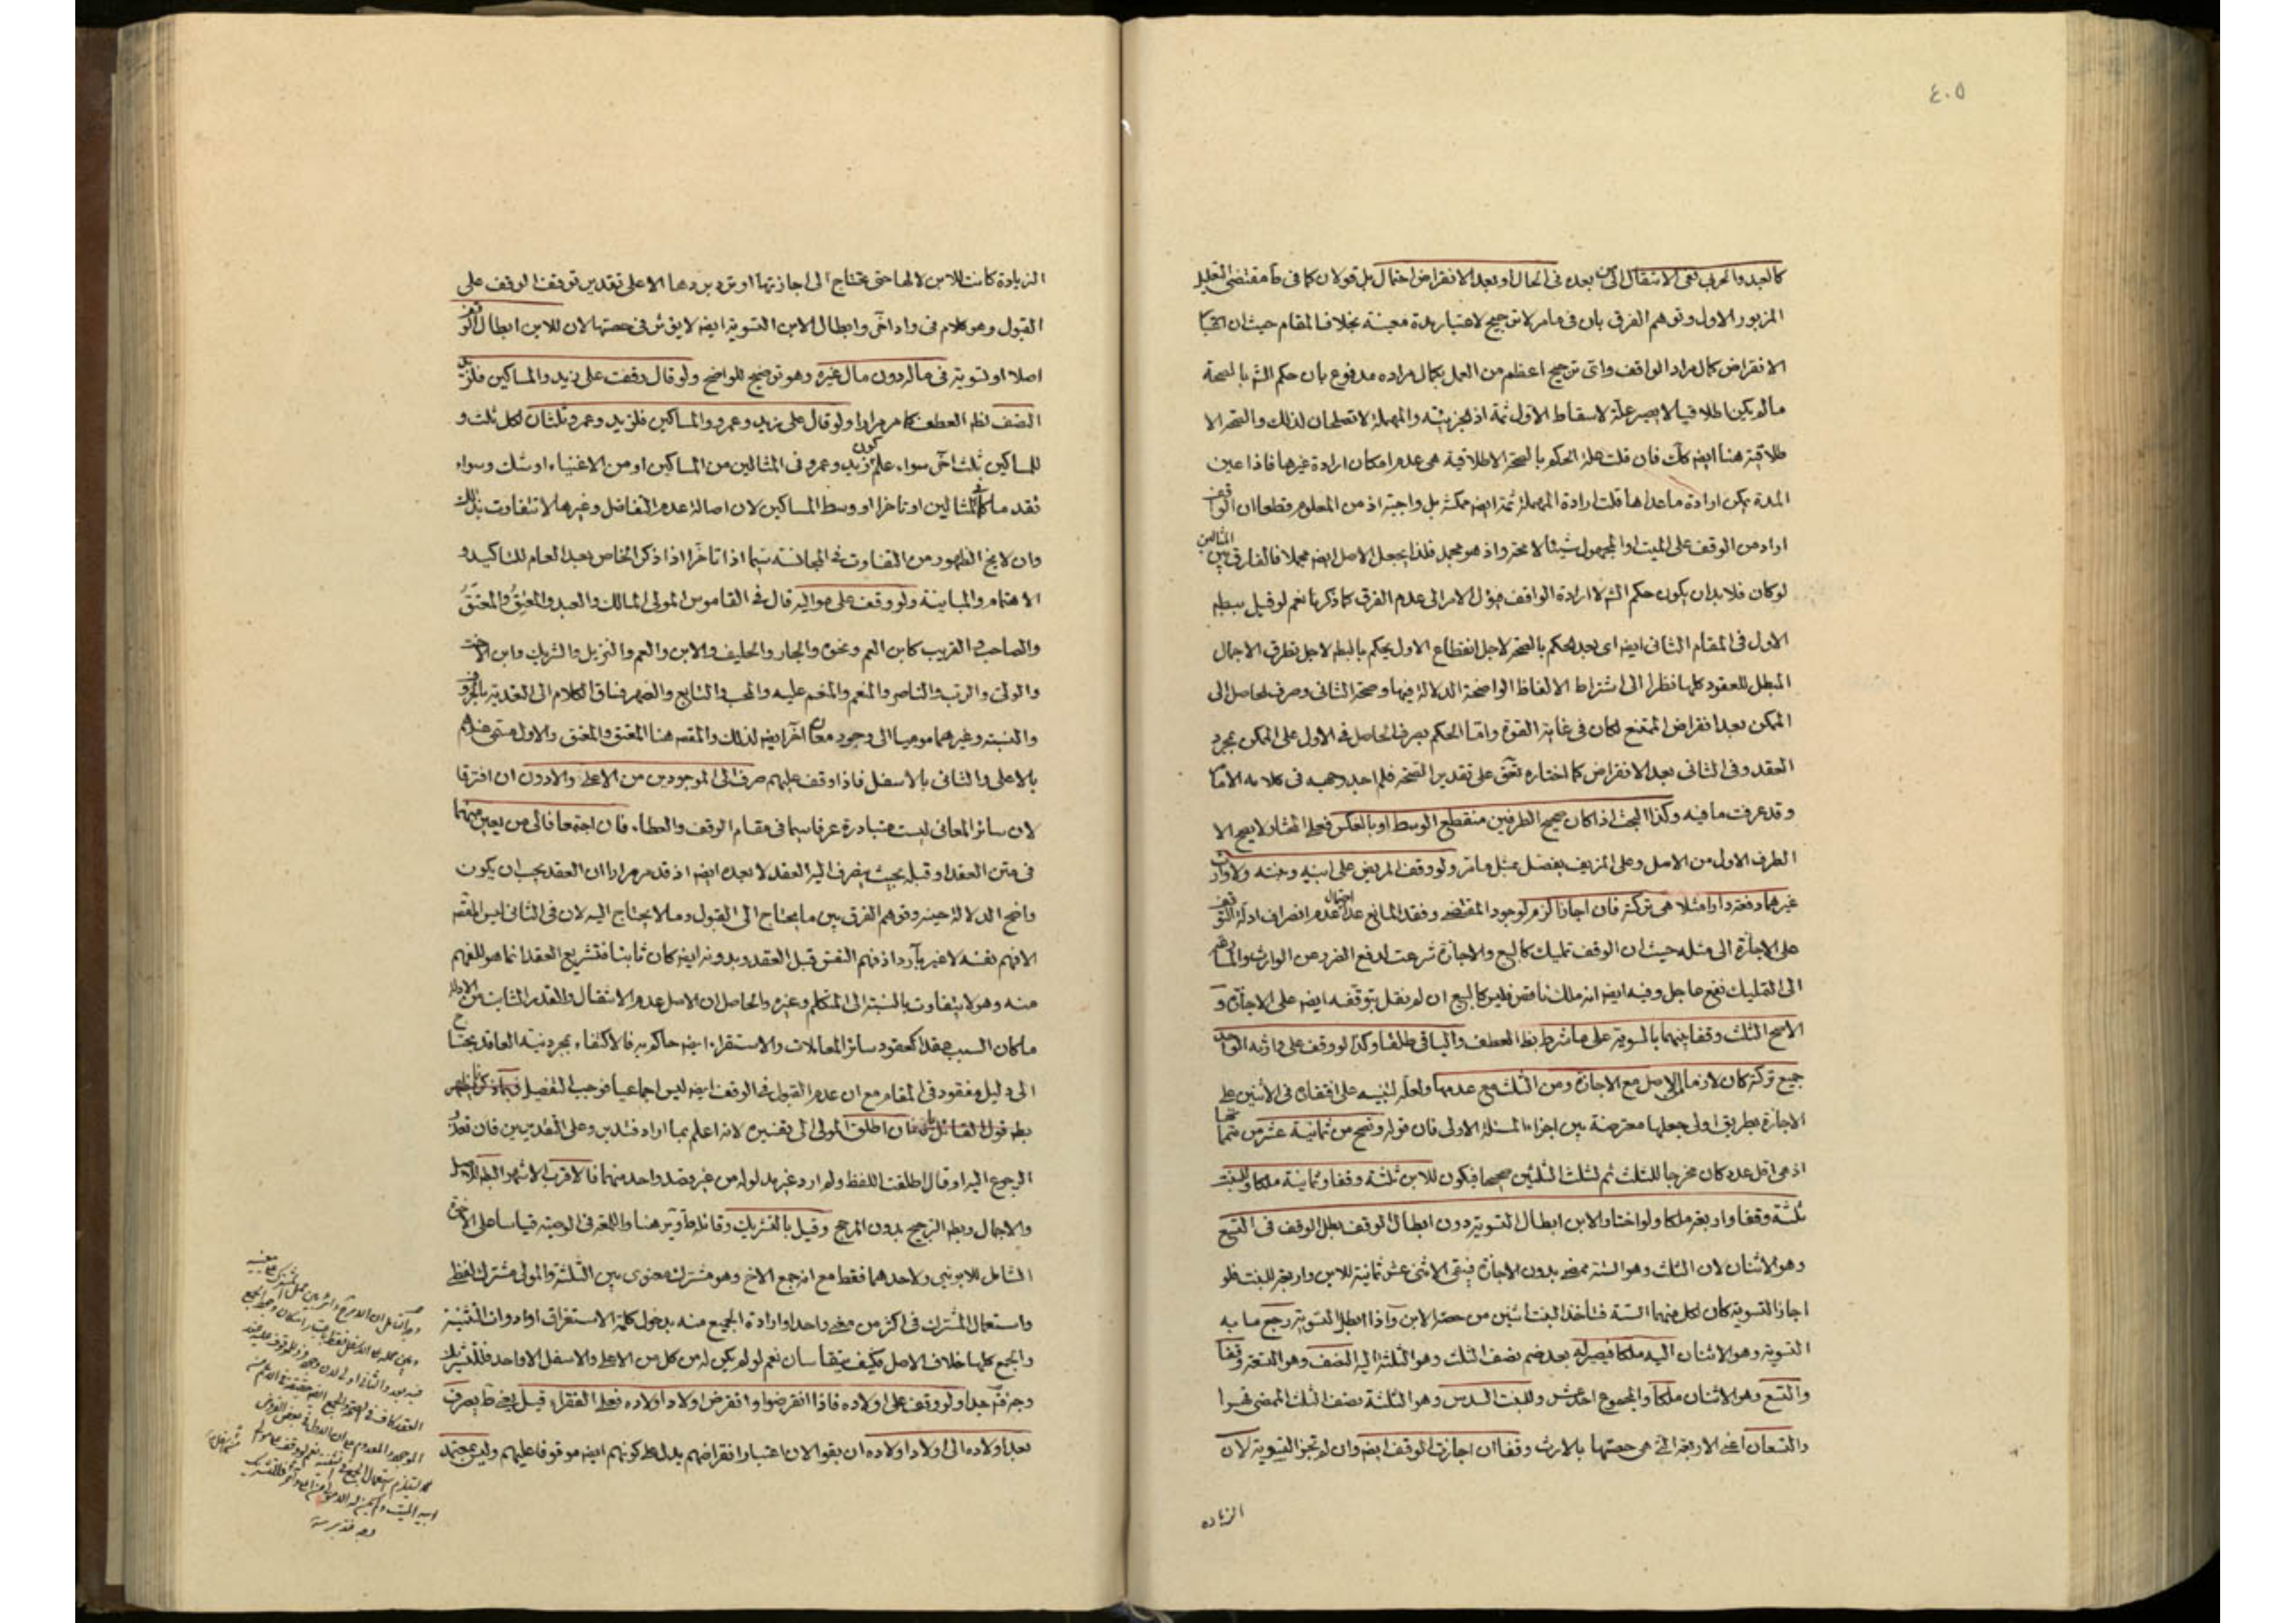 ٤٠٥
كالعبد والحربى ففى الانتقال الى من بعده فى الحال او بعد الانقراض احتمال بل قولان كما فى مقتضى التعليل
المزبور الاول وتوهم الفرق بان فى مامر لا ترجيح لاعتبار مدة معينة بخلاف المقام حيث ان
الانقراض كمال مراد الواقف واى ترجيح اعظم من العمل بكمال مراده مدفوع بان حكم الشه بالصحة
مالم يكن اطلاقيا لا يصير علة لاسقاط الاول ثمة اذ الجزئية والمهملة لا تصلحان لذلك والصحة الا
طلاقية هنا ايضه فان قلت علة الحكم بالصحة الاطلاقية هى عدم امكان ارادة غيرها فاذا عين
المدة يمكن ارادة ماعداها قلت ارادة المهملة ثمة ايضه ممكنة بل واجبة اذ من المعلوم قطعا ان الواقف
اراد من الوقف على الميت او المجهول شيئا لا محة واذ هو مجمل فلذا يجعل الاصل ايضه مجملا فالفارق بين المثالين
لو كان فلا بد ان يكون حكم الشه لا ارادة الواقف فيؤل الامر الى عدم الفرق كما ذكرنا نعم لو قيل ببطه
الاول فى المقام الثانى ايضه اى بعد الحكم بالصحة لاجل انقطاع الاول يحكم بالبطه لاجل تطرق الاجمال
المبطل للعقود كلها نظرا الى اشتراط الالفاظ الواضحة الدلالة فيها وصحة الثانى وصرف الحاصل الى
الممكن بعد انقراض الممتنع لكان فى غاية القوة واما الحكم بصرف الحاصل فى الاول على الممكن بمجرد
العقد وفى الثانى بعد الانقراض كما اختاره على تقدير الصحة فلم اجد وجهه فى كلامه
وقد عرفت ما فيه وكذا البحث اذا كان صحيح الطرفين منقطع الوسط او بالعكس فعلى المختار لا يصح الا
الطرف الاول من الاصل وعلى المزيف يفصل بمثل مامر ولو وقف المريض على ابنه وبنته ولا وارث
غيرهما دفعة دارا مثلا هى تركته فان اجازا لزم لوجود المقتضى وفقد المانع عدا احتمال عدم انصراف ادلة التوقف
على الاجازة الى مثله حيث ان الوقف تمليك كالبيع والاجازة شرعت لدفع الضرر عن الوارث
الى التمليك نفع عاجل وفيه ايضه انه ملك ناقص فليس كالبيع ان لم نقل بتوقفه ايضه على الاجازة و
الاصح الثلث وقفا بينهما بالسوية على ما شرط بظه العطف والباقى طلقا وكذا لو وقف على وارثه الواحد
جميع تركته كان لازما بالاصل مع الاجازة ومن الثلث مع عدمها ولعله لتنبيه على افتقاره فى الاثنين على
الاجازة بطريق اولى جعلها معترضة بين اجزاء المسئلة الاولى فان قوله وتصح من ثمانية عشر من
اذ هى اقل عدد كان مخرجا للثلث ثم لثلث الثلثين صحيحا فيكون للابن ثلثة وقفا وثمانية ملكا وللبنت
ثلثة وقفا واربعة ملكا ولو اختار الابن ابطال التسوية دون ابطال الوقف بطل الوقف فى التسع
وهو الاثنان لان الثلث وهو الستة ممضى بدون الاجازة فبقى الاثنى عشر ثمانية للابن واربعة للبنت فلو
اجاز التسوية كان لكل منهما الستة فتاخذ البنت اثنين من حصة الابن واذا ابطل التسوية رجع ما به
التسوية وهو الاثنان اليه ملكا فيصير له بعد ضم نصف الثلث وهو الثلثة اليه النصف وهو التسعة وقفا
والتسع وهو الاثنان ملكا والمجموع احد عشر وللبنت السدس وهو الثلثة نصف الثلث الممضى قهرا
والتسعان اعنى الاربعة التى هى حصتها بالارث وقفا ان اجازت الوقف ايضه وان لم تجز التسوية لان
الزياده
الزيادة كانت للابن لا لها حتى يحتاج الى اجازتها او ترد بردها الا على تقدير توقف الوقف على
القبول وهو كلام فى واد اخر وابطال الابن التسوية ايضه لا يؤثر فى حصتها لان للابن ابطال الوقف
اصلا او تسوية فى ماله دون مال غيره وهو توضيح للواضح ولو قال وقفت على زيد والمساكين فلزيد
النصف لظه العطف كما مر مرارا ولو قال على زيد وعمرو والمساكين فلزيد وعمرو ثلثان لكل ثلث و
للمساكين ثلث اخر سواء علم كون زيد وعمرو فى المثالين من المساكين او من الاغنياء او شك وسواء
تقدما كما فى المثالين او تاخرا او وسط المساكين لان اصالة عدم التفاضل وغيرها لا تتفاوت بذلك
وان لا يخ الظهور من التفاوت فى المجانسة سيما اذا تاخرا اذا ذكر الخاص بعد العام للتاكيد و
الاهتمام والمباينة ولو وقف على مواليه قال فى القاموس المولى المالك والعبد والمعتِق والمعتَق
والصاحب والقريب كابن العم ونحوه والجار والحليف والابن والعم والنزيل والشريك وابن الاخت
والولى والرب والناصر والمنعم والمنعم عليه والمحب والتابع والصهر وساق الكلام الى التعدية بالحروف
والنسبة وغيرهما موميا الى وجود معان اخر ايضه لذلك والمقصه هنا المعتق والمعتق والاول مسمى عندهم
بالاعلى والثانى بالاسفل فاذا وقف عليهم صرف الى الموجودين من الاعلى والادون ان افترقا
لان سائر المعانى ليست متبادرة عرفا سيما فى مقام الوقف والعطاء فان اجتمعا فالى من يعين منهما
فى متن العقد او قبله بحيث ينصرف اليه العقد لا بعده ايضه اذ قد مر مرارا ان العقد يجب ان يكون
واضح الدلالة حينه وتوهم الفرق بين ما يحتاج الى القبول وما لا يحتاج اليه لان فى الثانى ليس المقصه
الا فهم نفسه لا غير بارد اذ فهم النفس قبل العقد وبدونه ايضه كان ثابتا فتشريع العقد انما هو للفهم
منه وهو لا يتفاوت بالنسبة الى المتكلم وغيره والحاصل ان الاصل عدم الانتقال والقدر الثابت من الادلة
ما كان السبب عقدا كعقود سائر المعاملات والاستقراء ايضه حاكم به فالاكتفاء بمجرد نية العاقد يحتاج
الى دليل مفقود فى المقام مع ان عدم القبول فى الوقف ايضه ليس اجماعيا فوجب التفصيل
بطه قول القائل فان اطلق المولى الى تفسيره لانه اعلم بما اراد فتدبر وعلى التقديرين فان تعذر
الرجوع اليه او قال اطلقت اللفظ ولم ارد غير مدلوله من غير قصد واحد منهما فالاقرب الاشهر البطه للاصل
والاجمال وبطه الترجيح بدون المرجح وقيل بالتشريك وقائله هنا واللغة فى الوصية قياسا على الاخوة
الشامل للابوينى ولاحدهما فقط مع انه جمع الاخ وهو مشترك معنوى بين الثلثة والمولى مشترك لفظى
واستعمال المشترك فى اكثر من معنى واحد او ارادة الجميع منه بدخول كلمة الاستغراق او ادوات التثنية
والجمع كلها خلاف الاصل فكيف يتقاسان نعم لو لم يكن له من كل من الاعلى والاسفل الا واحد فللتشريك
وجه فتـ جدا ولو وقف على اولاده فاذا انقرضوا وانقرض اولاد اولاده فعلى الفقراء قيل يعنى يصرف
بعد اولاده الى اولاد اولاده ان بقوا لان اعتبار انقراضهم يدل على كونهم ايضه موقوفا عليهم وليس بمعتمد